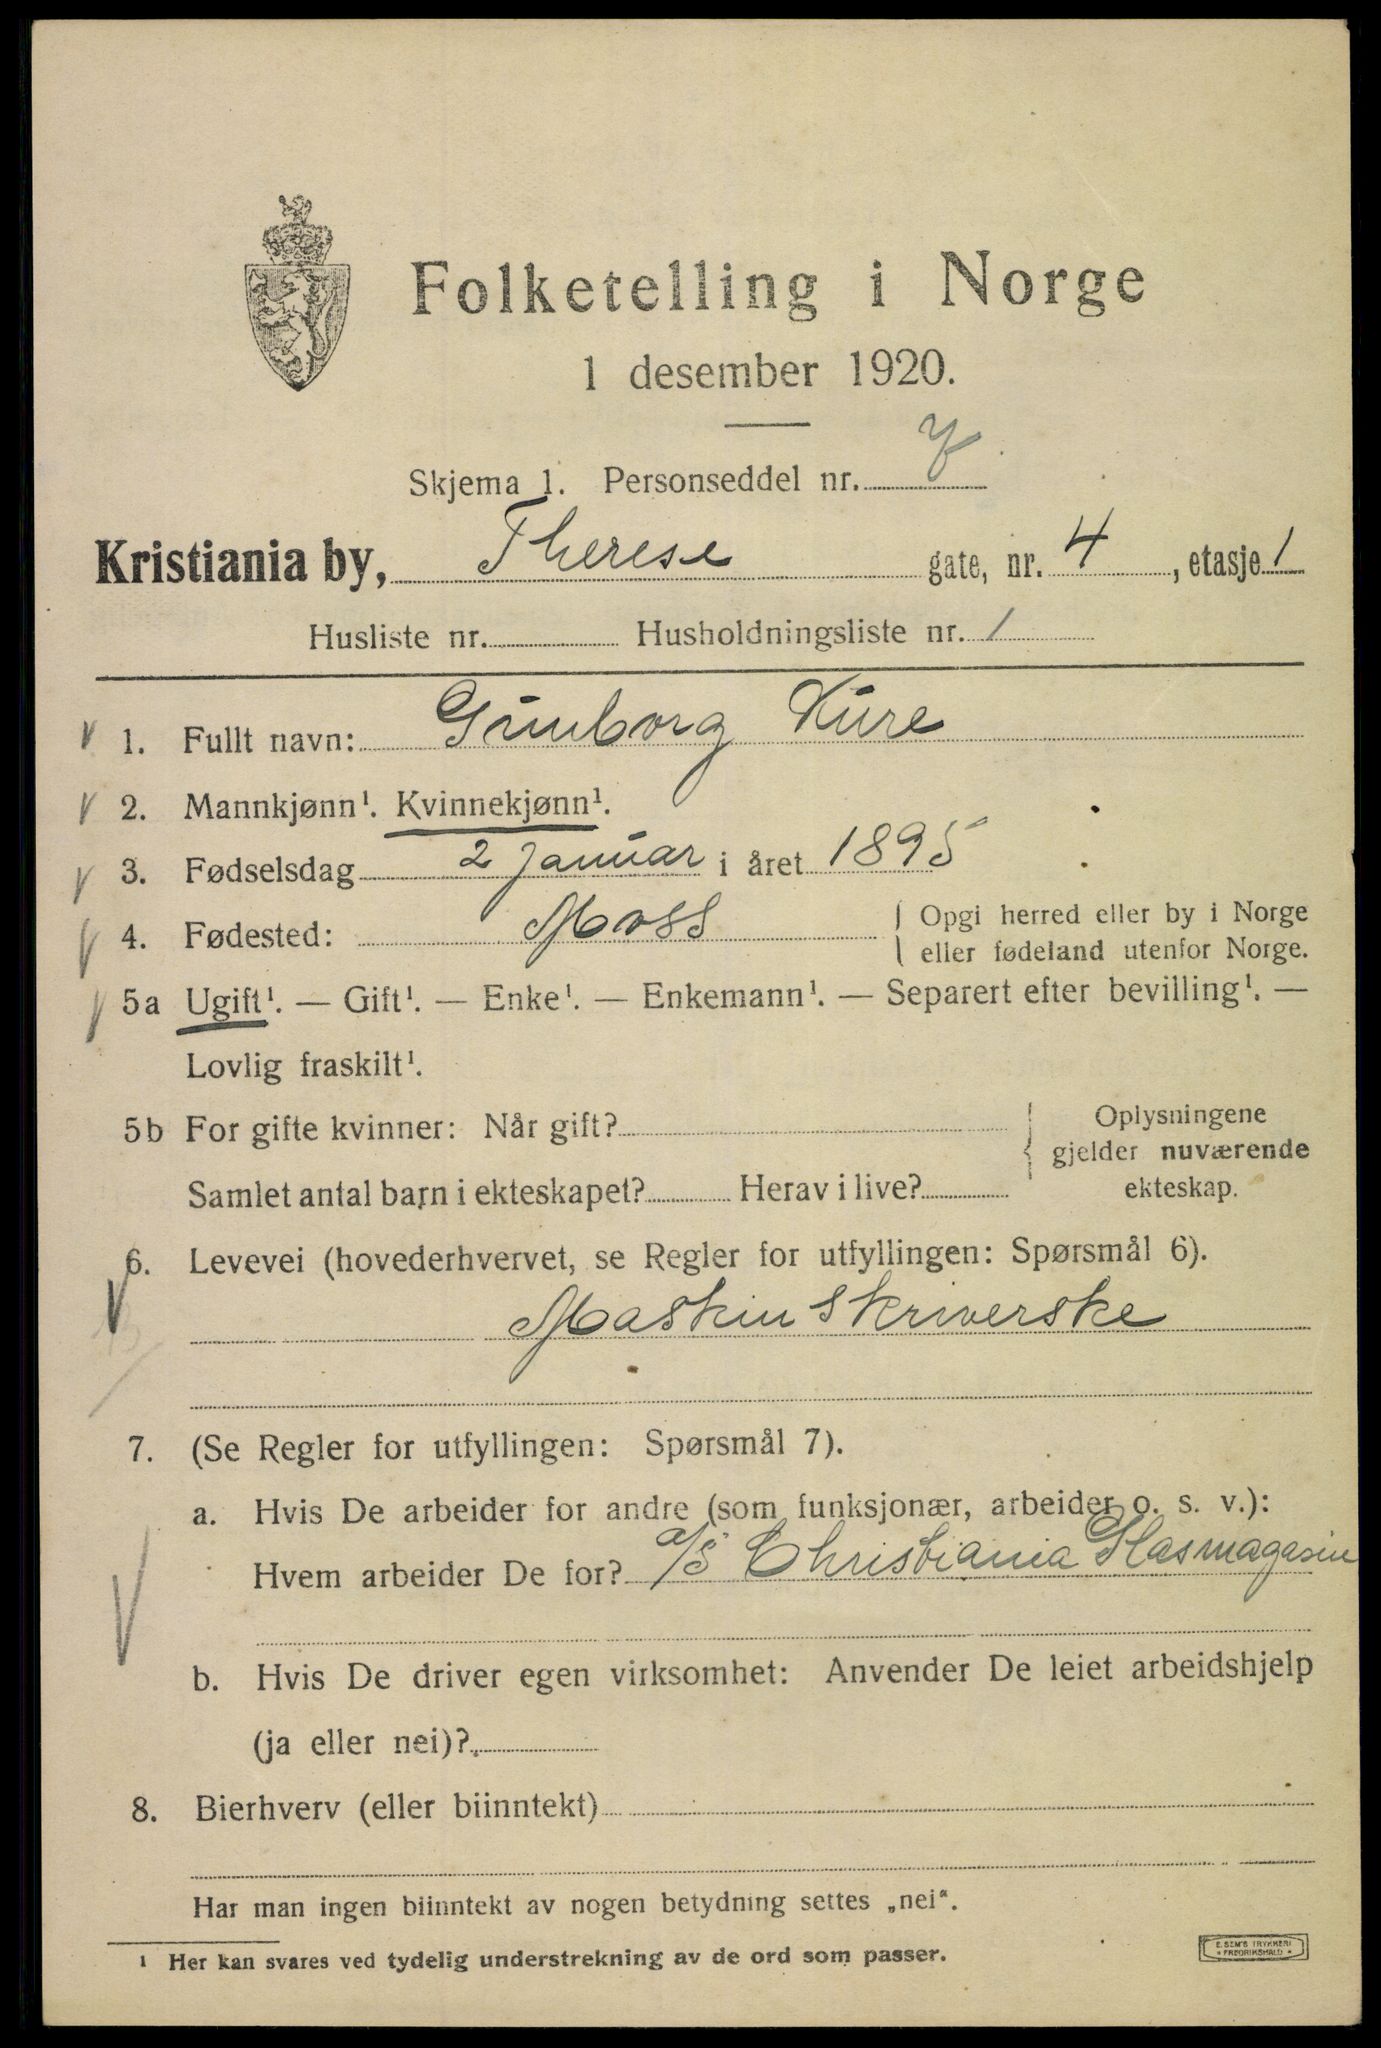 Folketelling i Norge
1 desember 1920.
Skjema 1. Personseddel nr. 7
Kristiania by, Therese gate, nr. 4, etasje 1
Husliste nr. Husholdningsliste nr. 1
1. Fullt navn: Gunborg Kure
2. Mannkjønn¹. Kvinnekjønn¹.
3. Fødselsdag 2 januar i året 1895
4. Fødested: Moss { Opgi herred eller by i Norge
eller fødeland utenfor Norge.
5a Ugift¹. — Gift¹. — Enke¹. — Enkemann¹. — Separert efter bevilling¹. —
Lovlig fraskilt¹.
5b For gifte kvinner: Når gift?
Samlet antal barn i ekteskapet? Herav i live?
Oplysningene
gjelder nuværende
ekteskap.
6. Levevei (hovederhvervet, se Regler for utfyllingen: Spørsmål 6).
Maskinskriverske
7. (Se Regler for utfyllingen: Spørsmål 7).
a. Hvis De arbeider for andre (som funksjonær, arbeider o. s. v.):
Hvem arbeider De for? a/s Christiania Glasmagasin
b. Hvis De driver egen virksomhet: Anvender De leiet arbeidshjelp
(ja eller nei)?
8. Bierhverv (eller biinntekt)
Har man ingen biinntekt av nogen betydning settes „nei“.
¹ Her kan svares ved tydelig understrekning av de ord som passer.
E. SEM'S TRYKKERI
FREDRIKSHALD